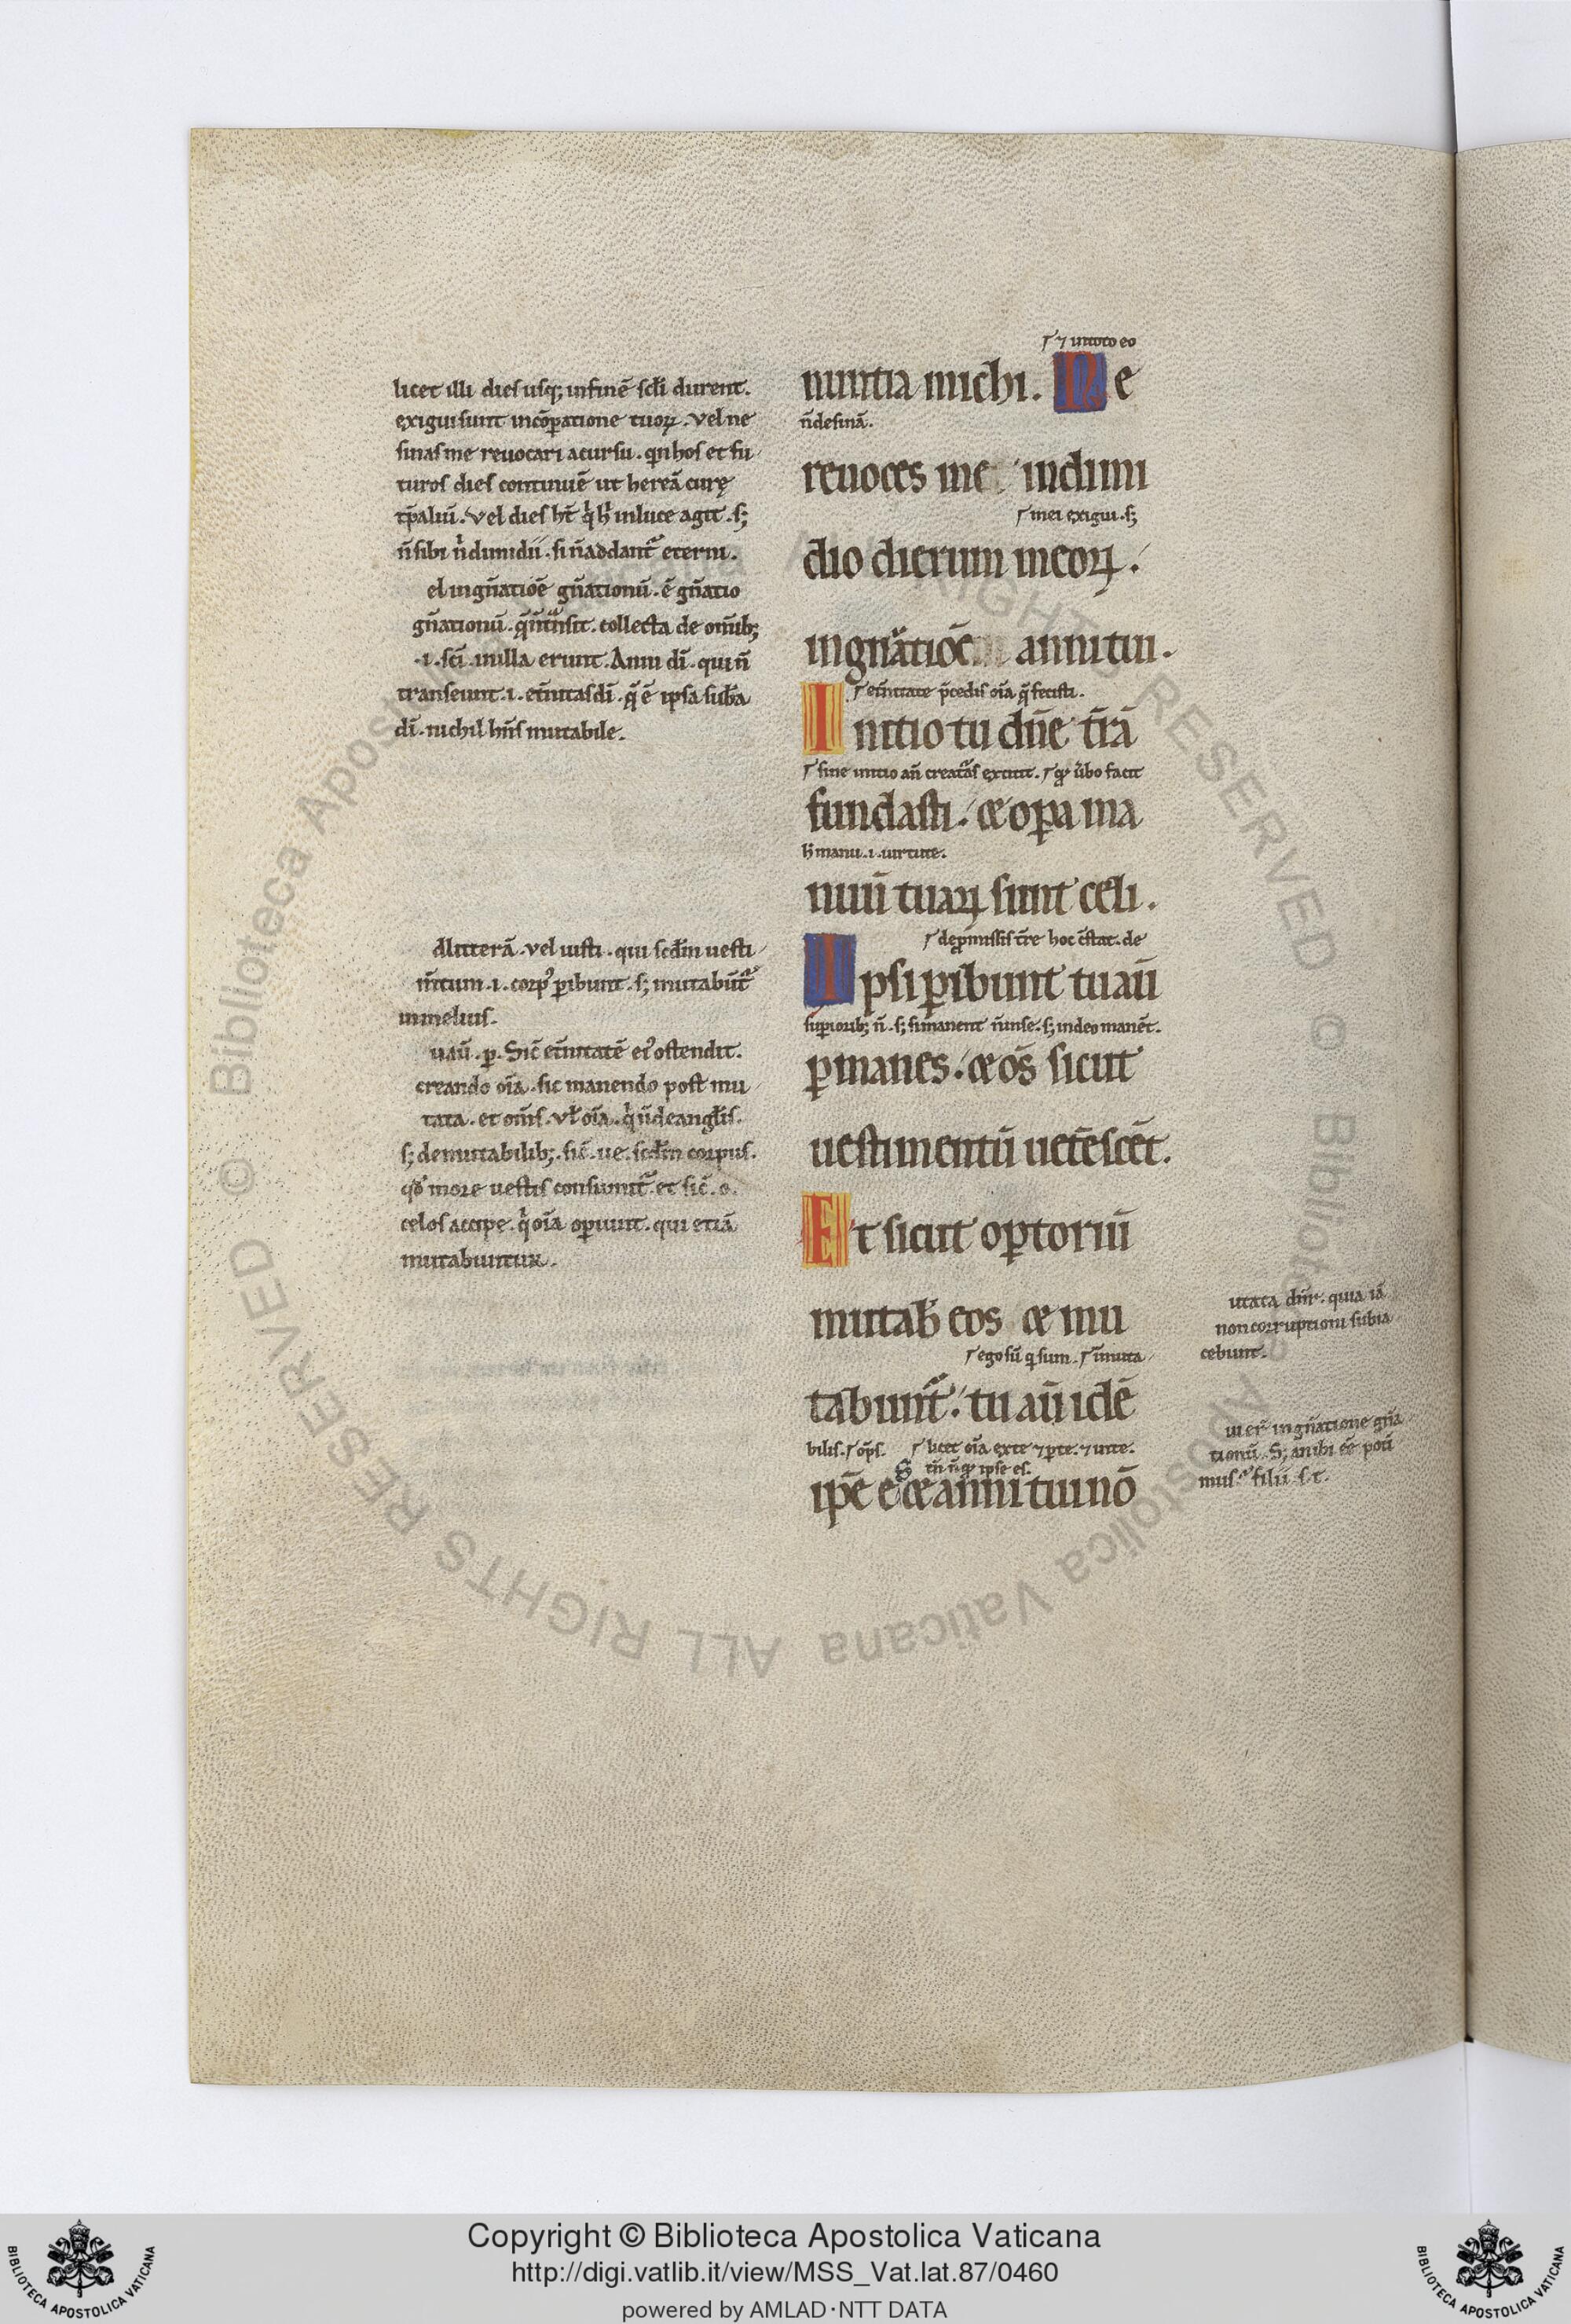 licet illi dies usq; in finē scl̄i durent.
exigui sunt in cōparatione tuoꝝ. Vel ne
sinas me reuocari a cursu. qn̄ hos et fu
turos dies continuē ut hereā curę
tp̄aliū. Vel dies ht̄ in luce agit. s;
n̄ sibi n̄ dimidii. si n̄ addant᷑ eterni.
el in gn̄atiōe gn̄ationū. ē gn̄atio
gn̄ationū. collecta de om̄ib;
.i. sc̄i. in illa erunt. Anni dī. qui n̄
transeunt .i. et̄nitas dī. q̄ ē ipsa sub̄a
dī. nichil hn̄s mutabile.
ad litterā. vel iusti. qui scd̄m uesti
m̄tum .i. corpꝰ ꝑibunt. s; mutabūt᷑
in melius.
u aū. ꝑ. Sic̄ et̄nitatē eiꝰ ostendit.
creando oīa. sic manendo post mu
tata. et om̄s. vł oīa. de angl̄is.
s; de mutabilib;. sic̄. ue. scd̄m corpus.
qđ more uestis consumit᷑. et sic̄. o.
celos accipe. oīa oꝑiunt. qui etiā
mutabuntur.
⁊ in toto eo
nuntia michi. Ne
n̄ desinā.
reuoces me in dimi
mei exigui. s;
dio dierum meoꝝ.
in gn̄atiōe annitui.
et̄nitate p̄cedis oīa q̄ fecisti.
Initio tu dn̄e t̄rā
sine initio an̄ creat᷑as extitit. uerbo facit
fundasti. & oꝑa ma
manu .i. uirtute.
nuū tuaꝝ sunt celi.
de ꝓmissis t̄re hoc c̄stat. de
Ipsi ꝑibunt tu aū
suꝑiorib; n̄. s; si manent n̄ in se. s; in deo manēt.
ꝑmanes. & oēs sicut
uestimentū uet̄escēt.
Et sicut oꝑtoriū
mutab̄ eos & mu
ego sū q̄ sum. īmuta
tabunt᷑. tu aū idē
bilis. licet oīa ext̄e ⁊ ꝑte. ⁊ in te.
tn̄ ipse es.
ip̄e es & anni tui nō
utata dn̄r. quia iā
non corruptioni subia
cebunt.
ui er̄ in gn̄atione gn̄a
tionū. S; an ibi eē pot̄i
mus filii. s. t.
Copyright © Biblioteca Apostolica Vaticana
http://digi.vatlib.it/view/MSS_Vat.lat.87/0460
powered by AMLAD·NTT DATA